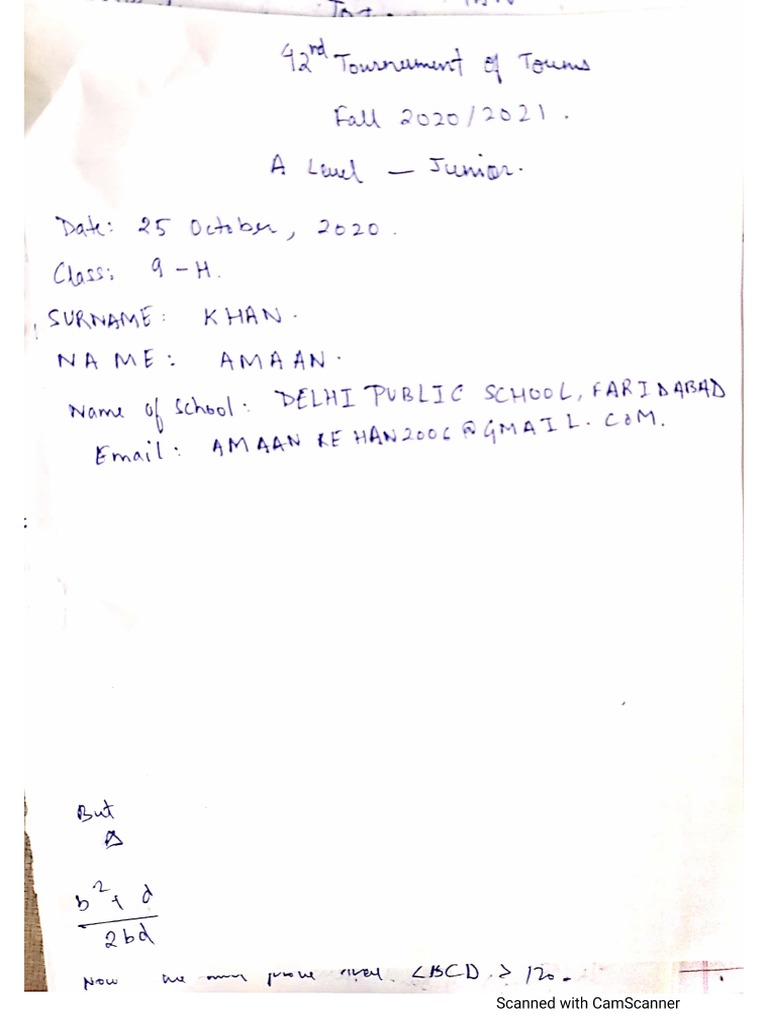 42nd Tournament of Towns
Fall 2020/2021.
A Level — Junior.
Date: 25 October, 2020.
Class: 9-H.
SURNAME: KHAN.
NAME: AMAAN.
Name of School: DELHI PUBLIC SCHOOL, FARIDABAD
Email: AMAANREHAN2006@GMAIL.COM.
But
△
b² + d
2bd
Now we prove ∠BCD > 120.
Scanned with CamScanner